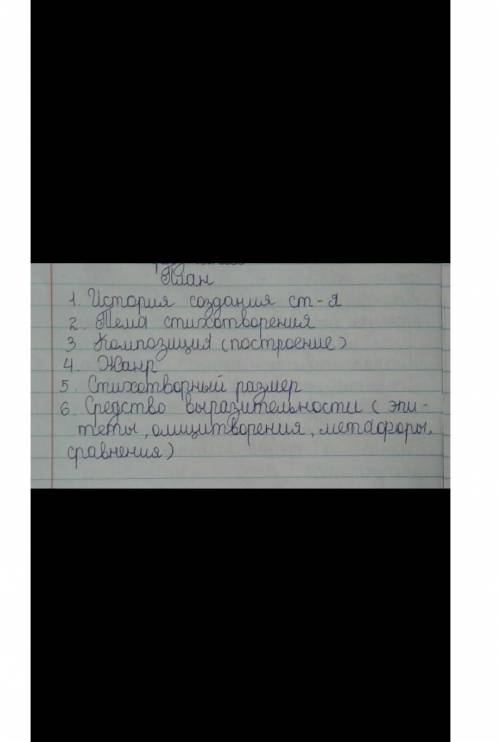 План
1. История создания ст-я
2. Тема стихотворения
3. Композиция (построение)
4. Жанр
5. Стихотворный размер
6. Средство выразительности (эпи-
теты, олицитворения, метафоры,
сравнения)